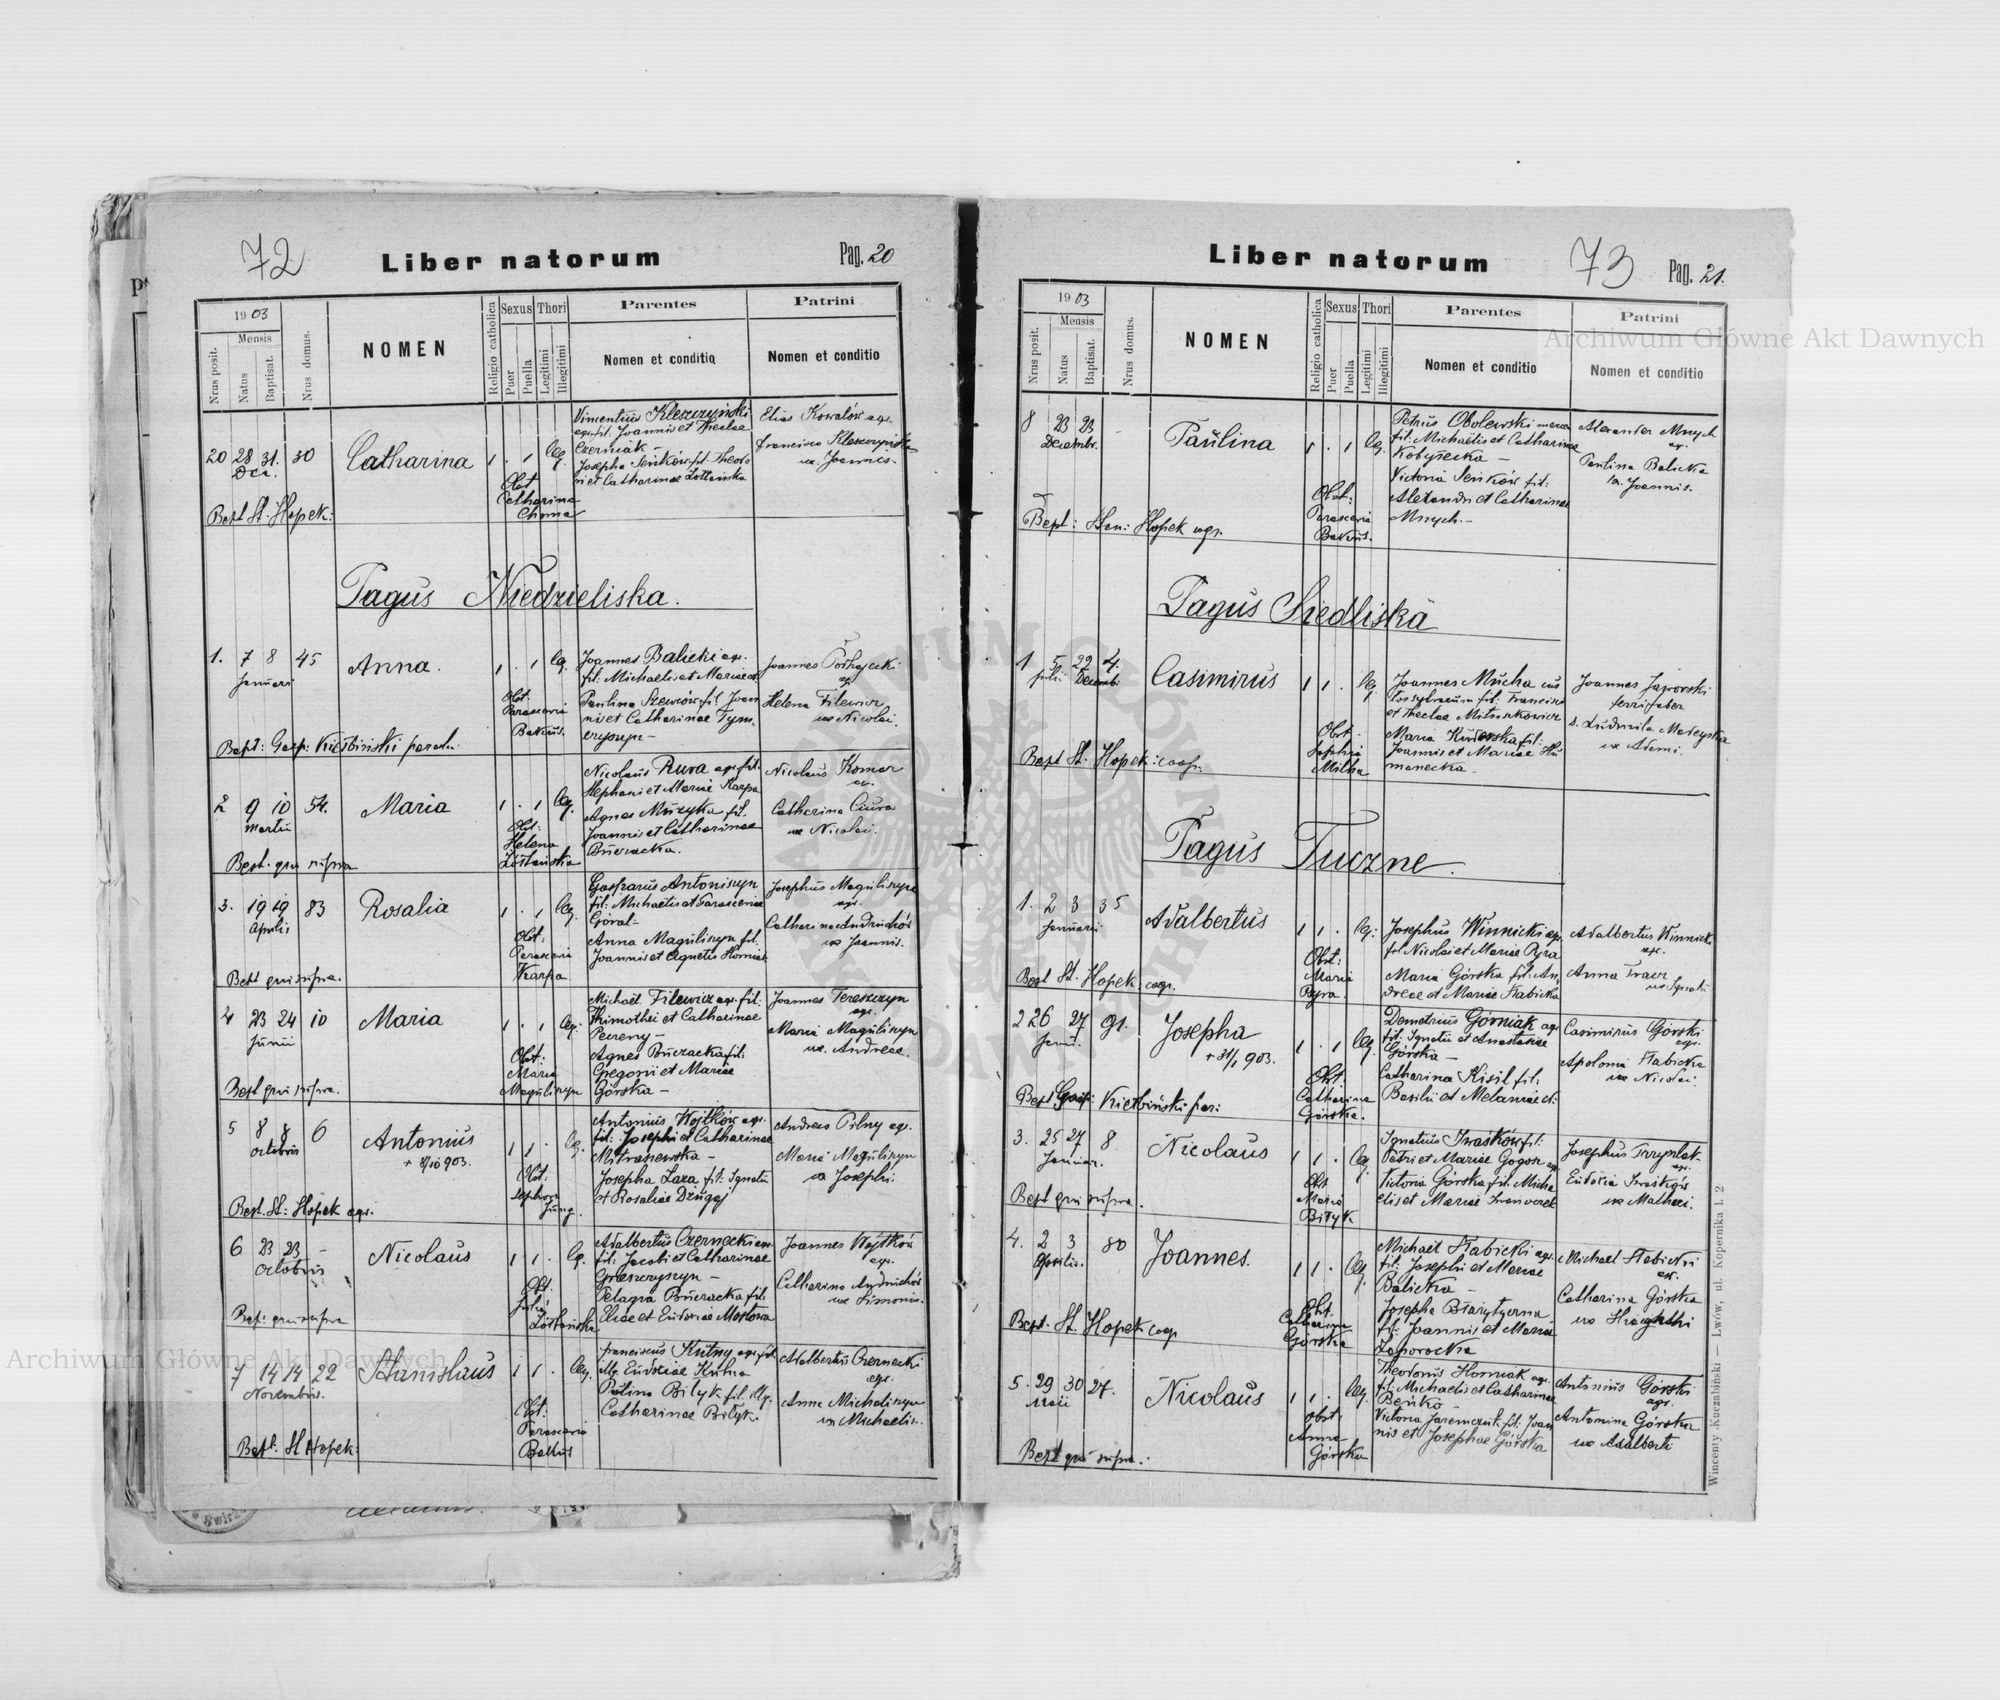 72
Liber natorum
Pag. 20
1903
Mensis
Nrus posit.
Natus
Baptisat.
Nrus domus.
NOMEN
Religio catholica
Sexus
Puer
Puella
Thori
Legitimi
Illegitimi
Parentes
Nomen et conditio
Patrini
Nomen et conditio
20 28 31. 30 Catharina 1 . 1 leg.
Dec.
Vincentius Kleszczyński
agr. fil. Joannis et Theclae
Czerniak -
Josepha Seńków fil. Theodo
ri et Catharinae
Elias Kowalów agr.
Francisca Kleszczyńska
ux. Joannis.
Obst.
Catharina
Choma
Bapt St. Hopek:
Tagus Niedzieliska.
1. 7 8 45 Anna. 1 . 1 leg.
Januari
Joannes Balicki agr.
fil. Michaelis et Mariae
Paulina Szewców fil. Joan
nis et Catharinae Tym
czyszyn -
Joannes Podhajecki
agr.
Helena Filewicz
ux Nicolai.
Obst.
Parascevia
Bakus.
Bapt: Gasp: Kiełbiński paroch.
2 9 10 54. Maria 1 . 1 leg.
Martii
Nicolaus Rura agr. fil.
Stephani et Mariae Karpa
Agnes Muzyka fil.
Joannis et Catharinae
Buczacka.
Nicolaus Komar
agr.
Catharina Ciura
ux Nicolai.
Obst:
Helena
Bapt. qui supra
3. 19 19 83 Rosalia 1 . 1 leg.
Aprilis
Gasparus Antoniszyn
fil: Michaelis et Parasceviae
Góral -
Anna Maguliszyn fil.
Joannis et Agnetis Horniak
Josephus Maguliszyn
agr.
Catharina Andruchów
ux Joannis.
Obst:
Parascevia
Karpa
Bapt qui supra.
4 23 24 10 Maria 1 . 1 leg.
Junii
Michael Filewicz agr. fil:
Thimothei et Catharinae
Agnes Buczacka fil.
Gregorii et Mariae
Górska -
Joannes Tereszczyn
agr.
Maria Maguliszyn
ux. Andreae.
Obst:
Maria
Maguliszyn
Bapt qui supra.
5 8 8 6 Antonius 1 1 . leg.
Octobris
+ 8/10 903.
Antonius Wojtków agr.
fil. Josephi et Catharinae
Josepha Laza fil: Ignatii
et Rosaliae Dżugaj
Andreas Pilny agr.
Maria Maguliszyn
ux Josephi.
Obst:
Bapt. St: Hopek agr.
6 23 23 - Nicolaus 1 1 . leg.
Octobris
Adalbertus Czernecki agr.
fil. Jacobi et Catharinae
Pelagia Buczacka fil.
Eliae et Eudoxiae Mostowa
Joannes Wojtków
agr.
Catharina Andruchów
ux Simonis.
Obst.
Julia
Bapt: qui supra
7 14 14 22 Stanislaus 1 1 . leg.
Novembris.
Franciscus Kutny agr. fil.
illg. Eudoxiae Kutna
Paulina Biłyk fil. illg.
Catharinae Biłyk.
Adalbertus Czernecki
agr.
Anna Michaliszyn
ux Michaelis.
Obst:
Parascevia
Bakus
Bapt. St Hopek:
73
Liber natorum
Pag. 21.
1903
Mensis
Nrus posit.
Natus
Baptisat.
Nrus domus.
NOMEN
Religio catholica
Sexus
Puer
Puella
Thori
Legitimi
Illegitimi
Parentes
Nomen et conditio
Patrini
Nomen et conditio
8 23 23 - Paulina 1 . 1 leg.
Decembr.
Petrus Obolewski
fil. Michaelis et Catharinae
Kobyłecka -
Victoria Seńków fil:
Alexandri et Catharinae
Mnych. -
Alexander Mnych
agr.
Paulina Balicka
ux. Joannis.
Obst:
Parascevia
Bakus.
Bapt: Stan: Hopek agr.
Tagus Siedliska
1 5 22 4. Casimirus 1 1 . leg.
Julii Decemb:
Joannes Mucha
fil. Francisci
et Theclae Mituszkowicz
Joannis et Mariae Hu
manecka -
Joannes Jaworski
ferrifaber
s. Ludmila Madeyska
ux Adami.
Obst:
Sophia
Milka
Bapt St. Hopek: coop.
Tagus Tuczne.
1. 2 3 35 Adalbertus 1 1 . leg:
Januarii
Josephus Winnicki agr.
fil. Nicolai et Mariae Pyra
Maria Górska fil: An
dreae et Mariae Habicka
Adalbertus Winnicki
agr.
Anna Tracz
ux Ignatii
Obst:
Maria
Pyra.
Bapt St. Hopek coop.
2 26 27 91. Josepha 1 . 1 leg.
Janu.
+ 31/1 903.
Demetrius Górniak agr.
fil. Ignatii et Anastasiae
Górska -
Catharina Kisil fil:
Basilii et Melaniae
Casimirus Górski
agr.
Apolonia Habicka
ux Nicolai.
Obst:
Catharina
Górska.
Bapt Gasp: Kiełbiński par:
3. 25 27 8 Nicolaus 1 1 . leg.
Januar.
Ignatius Iwaśków fil:
Petri et Mariae Gogosz agr.
Victoria Górska fil. Micha
elis et Mariae
Josephus
agr.
Eudoxia Iwaśków
ux Mathaei.
Obst
Maria
Biłyk
Bapt qui supra.
4. 2 3 80 Joannes. 1 1 . leg.
Aprilis.
Michael Habicki agr.
fil: Josephi et Mariae
Balicka -
Josepha
fil: Joannis et Maria
Zaporocka
Michael Habicki
agr.
Catharina Górska
ux
Obst
Catharina
Górska
Bapt. St. Hopek coop
5. 29 30 27. Nicolaus 1 1 . leg.
Maii
Theodorus Horniak agr.
fil. Michaelis et Catharinae
Beńko -
Victoria Jaremczuk fil: Joan
nis et Josephae Górska
Antonius Górski
agr.
Antonina Górska
ux Adalberti
Obst:
Anna
Górska
Bapt qui supra.
Wincenty Kuczabiński — Lwów, ul. Kopernika l. 2
Archiwum Główne Akt Dawnych
Archiwum Główne Akt Dawnych
ARCHIWUM GŁÓWNE AKT DAWNYCH